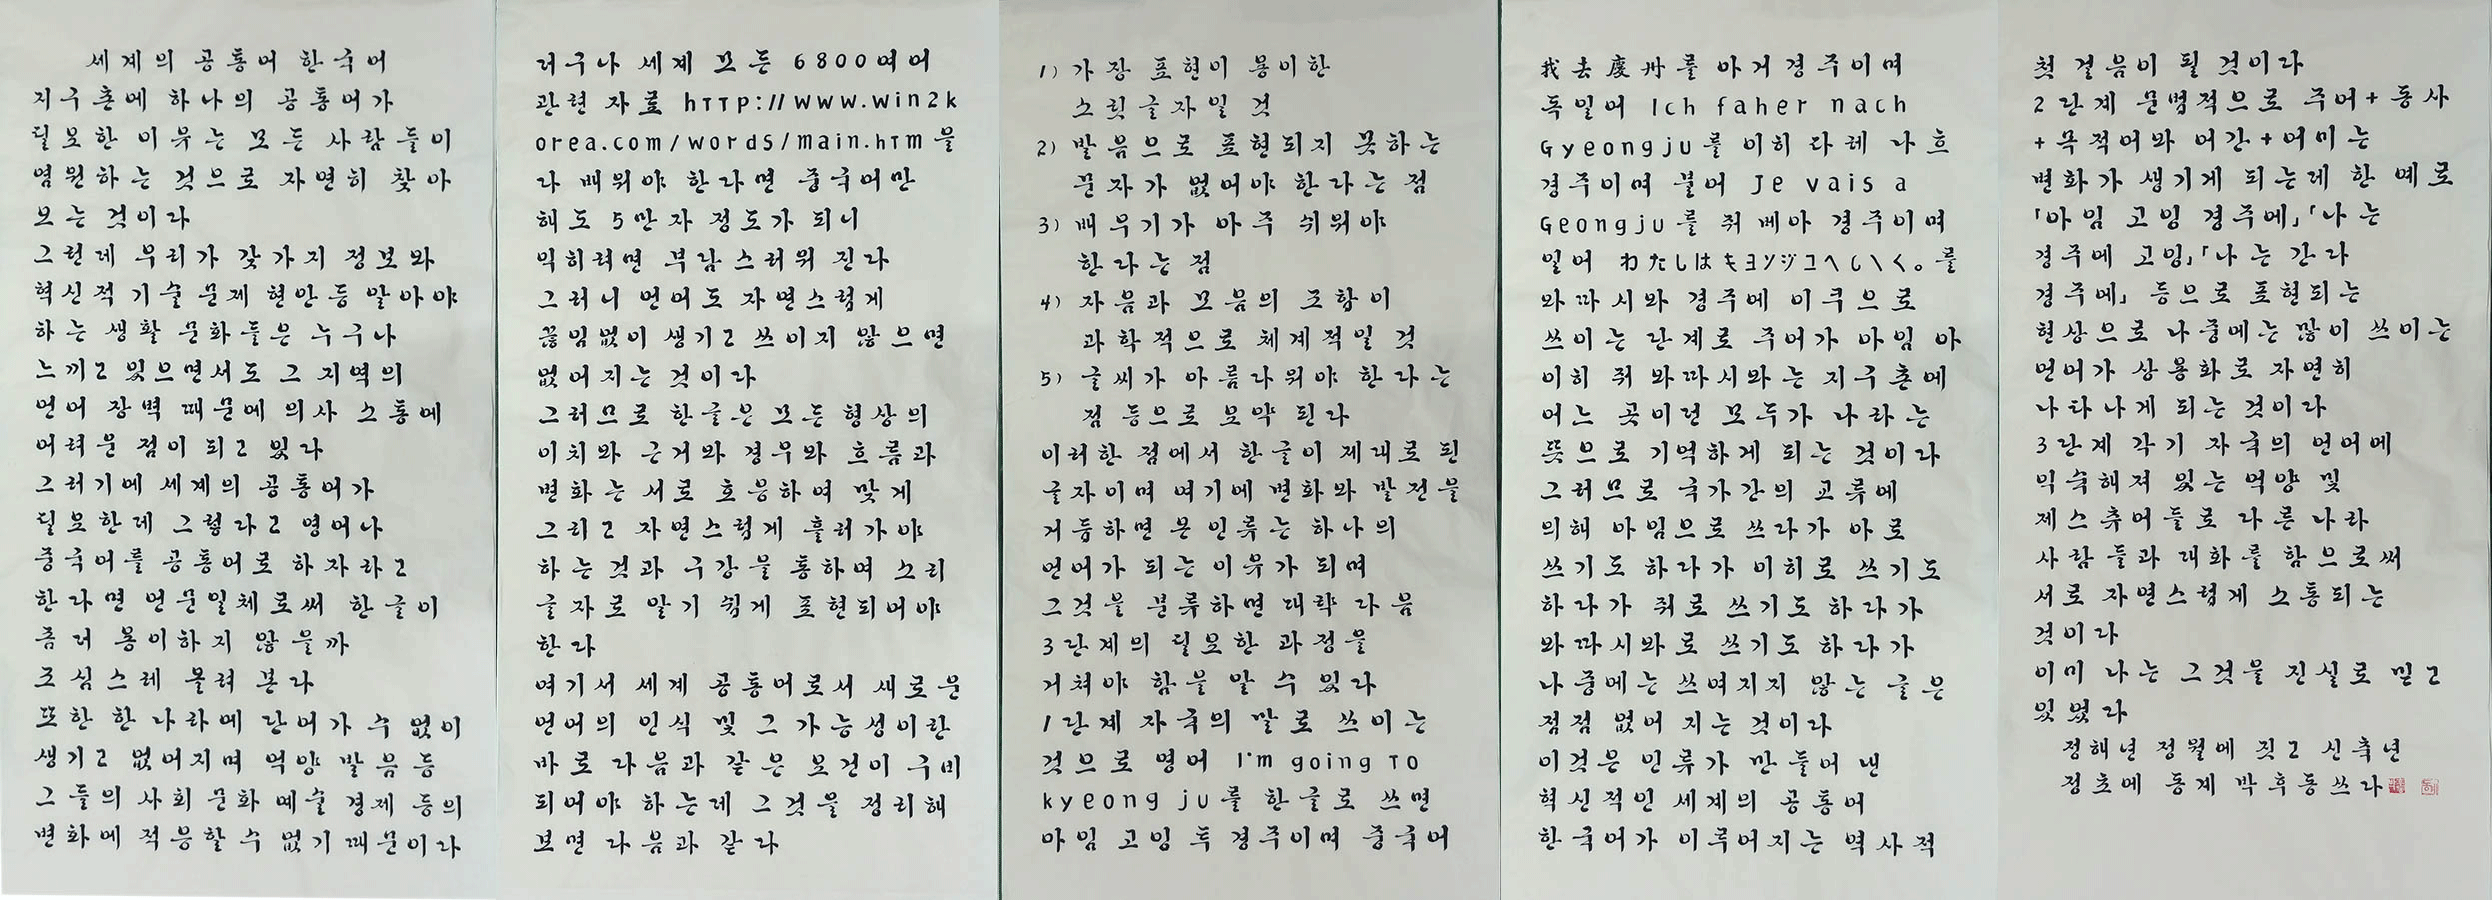 세계의 공통어 한국어
지구촌에 하나의 공통어가
필요한 이유는 모든 사람들이
염원하는 것으로 자연히 찾아
오는 것이다
그런데 우리가 갖가지 정보와
혁신적 기술 문제 현안등 알아야
하는 생활 문화들은 누구나
느끼고 있으면서도 그 지역의
언어 장벽 때문에 의사 소통에
어려운 점이 되고 있다
그러기에 세계의 공통어가
필요한데 그렇다고 영어나
중국어를 공통어로 하자라고
한다면 언문일체로써 한글이
좀더 용이하지 않을까
조심스레 물려 본다
또한 한 나라에 단어가 수 없이
생기고 없어지며 억양 발음등
그들의 사회 문화 예술 경제 등의
변화에 적응할 수 없기 때문이다
더구나 세계 모든 6800여어
관련 자료 http://www.win2k
orea.com/words/main.htm 을
다 배워야 한다면 중국어만
해도 5만자 정도가 되니
익히려면 부담스러워 진다
그러니 언어도 자연스럽게
끊임없이 생기고 쓰이지 않으면
없어지는 것이다
그러므로 한글은 모든 형상의
이치와 근거와 경우와 흐름과
변화는 서로 호응하여 맞게
그리고 자연스럽게 흘러가야
하는 것과 구강을 통하여 소리
글자로 알기 쉽게 표현되어야
한다
여기서 세계 공통어로서 새로운
언어의 인식 및 그 가능성이란
바로 다음과 같은 요건이 구비
되어야 하는데 그것을 정리해
보면 다음과 같다
1) 가장 표현이 용이한
소릿글자일 것
2) 발음으로 표현되지 못하는
문자가 없어야 한다는 점
3) 배우기가 아주 쉬워야
한다는 점
4) 자음과 모음의 조합이
과학적으로 체계적일 것
5) 글씨가 아름다워야 한다는
점 등으로 요약 된다
이러한 점에서 한글이 제대로 된
글자이며 여기에 변화와 발전을
거듭하면 본 인류는 하나의
언어가 되는 이유가 되며
그것을 분류하면 대략 다음
3단계의 필요한 과정을
거쳐야 함을 알 수 있다
1단계 자국의 말로 쓰이는
것으로 영어 I'm going to
kyeong ju를 한글로 쓰면
아임 고잉 투 경주이며 중국어
我去慶州를 아거경주이며
독일어 Ich faher nach
Gyeongju를 이히 파레 나흐
경주이며 불어 Je vais a
Geongju를 줘 베아 경주이며
일어 わたしはキョンジュへいく。를
와따시와 경주에 이쿠으로
쓰이는 단계로 주어가 아임 아
이히 줘 와따시와는 지구촌에
어느 곳이던 모두가 나라는
뜻으로 기억하게 되는 것이다
그러므로 국가간의 교류에
의해 아임으로 쓰다가 아로
쓰기도 하다가 이히로 쓰기도
하다가 줘로 쓰기도 하다가
와따시와로 쓰기도 하다가
나중에는 쓰여지지 않는 글은
점점 없어 지는 것이다
이것은 인류가 만들어 낸
혁신적인 세계의 공통어
한국어가 이루어지는 역사적
첫 걸음이 될 것이다
2단계 문법적으로 주어+동사
+목적어와 어간+어미는
변화가 생기게 되는데 한 예로
「아임 고잉 경주에」「나는
경주에 고잉」「나는 간다
경주에」 등으로 표현되는
현상으로 나중에는 많이 쓰이는
언어가 상용화로 자연히
나타나게 되는 것이다
3단계 각기 자국의 언어에
익숙해져 있는 억양 및
제스츄어들로 다른 나라
사람들과 대화를 함으로써
서로 자연스럽게 소통되는
것이다
이미 나는 그것을 진실로 믿고
있었다
정해년 정월에 짓고 신축년
정초에 동계 박후동쓰다